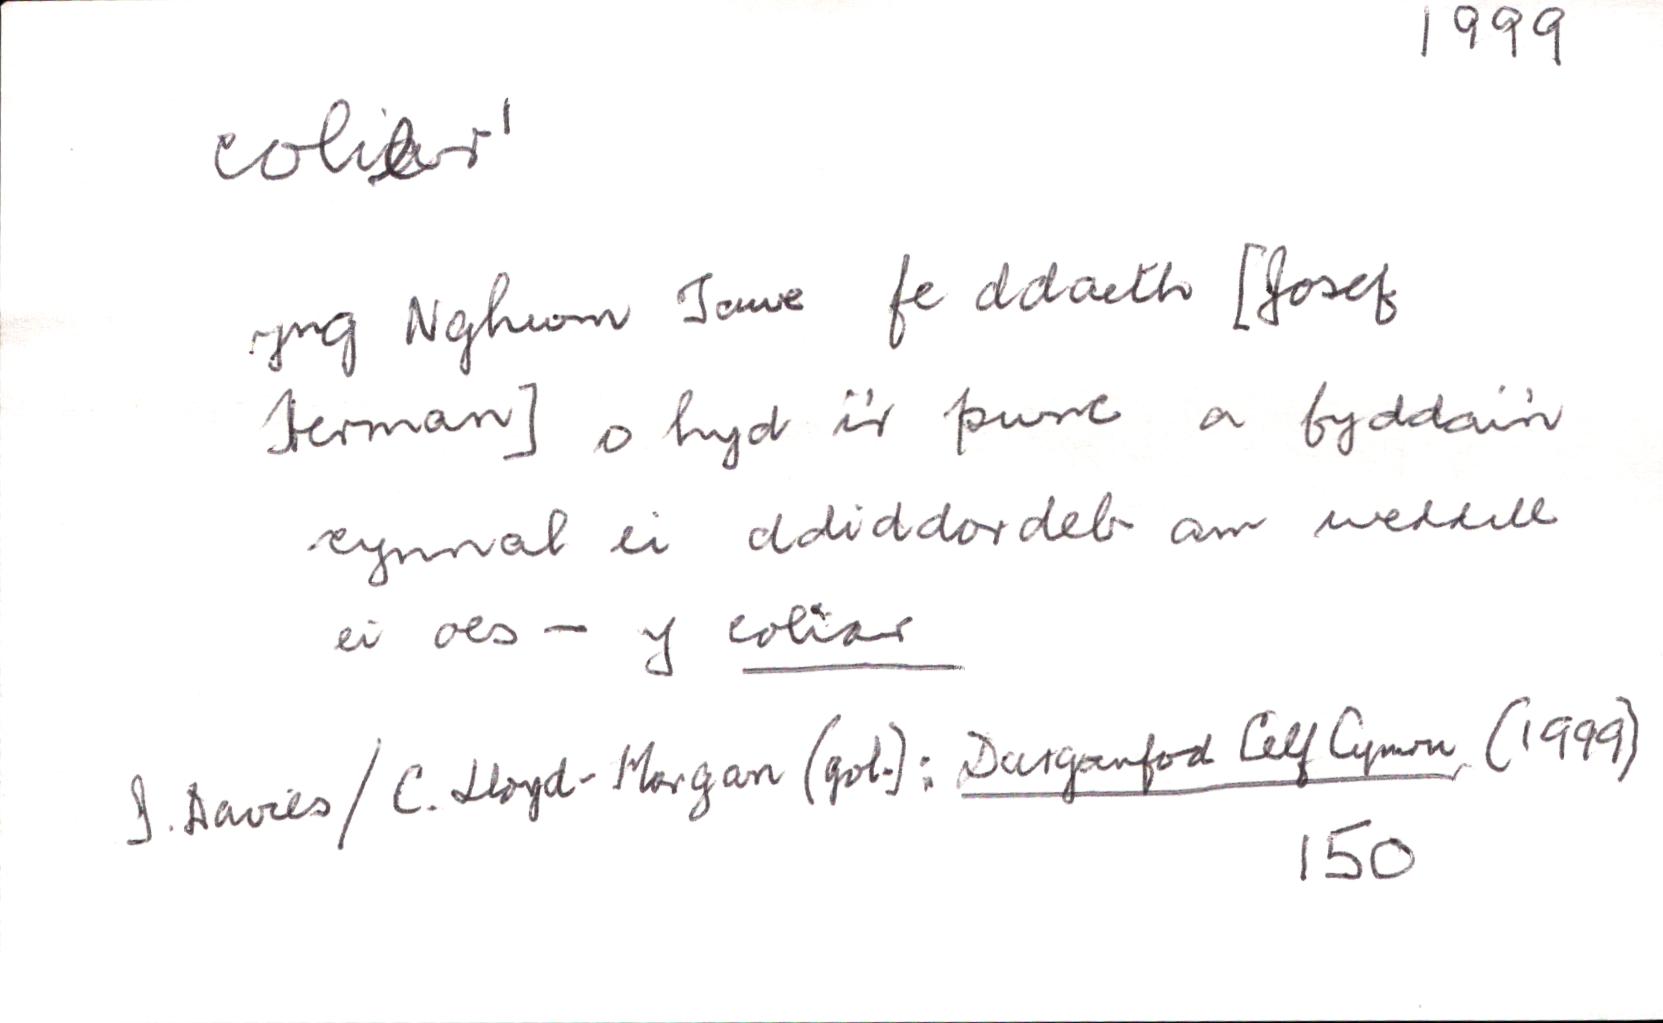 1999
colier¹
yng Nghwm Tawe fe ddaeth [Josef
Herman] o hyd i'r pwnc a fyddai'n
cynnal ei ddiddordeb am weddill
ei oes – y coliar
I. Davies / C. Lloyd-Morgan (gol.): Darganfod Celf Cymru (1999)
150